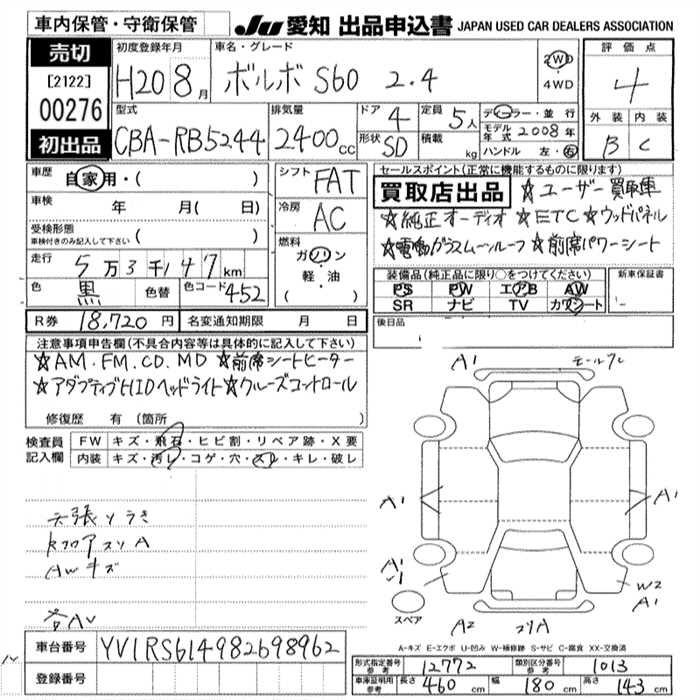 車内保管・守衛保管
JU 愛知 出品申込書 JAPAN USED CAR DEALERS ASSOCIATION
売切
[2122]
00276
初出品
初度登録年月
H20 8月
車名・グレード
ボルボ S60 2.4
2WD
・
4WD
評価点
4
外装 内装
B C
型式
CBA-RB5244
排気量
2400cc
ドア 4
形状 SD
定員 5人
積載 kg
ディーラー・並行
モデル年式 2008年
ハンドル 左・右
車歴
自家用・( )
車検 年 月( 日)
受検形態
車検付きのみ記入して下さい ( )
走行 5万3千147km
色 黒 色替 色コード 452
シフト FAT
冷房 AC
燃料
ガソリン
・
軽・油
( )
セールスポイント(正常に機能するものに限ります)
買取店出品 ☆ユーザー買取車
☆純正オーディオ☆ETC☆ウッドパネル
☆電動ガラスムーンルーフ☆前席パワーシート
装備品(純正品に限り○をつけてください)
PS PW エアB AW
SR ナビ TV カワシート
新車保証書
R券 18,720円 名変通知期限 月 日
後日品
注意事項申告欄(不具合内容等は具体的に記入して下さい)
☆AM.FM.CD.MD☆前席シートヒーター
☆アダプティブHIDヘッドライト☆クルーズコントロール
修復歴 有(箇所 )
検査員
記入欄
FW キズ・飛石・ヒビ割・リペア跡・X要
内装 キズ・汚レ・コゲ・穴・スレ・キレ・破レ
天張りうき
ドアスリA
AWキズ
各AU
A1 モール
A1 A1
A1
W2
A1
スペア A2 コリA
A-キズ E-エクボ U-凹み W-補修跡 S-サビ C-腐食 XX-交換済
車台番号 YV1RS614982698962
登録番号
形式指定番号 参考 12772 類別区分番号 参考 1013
車庫証明用 参考 長さ 460cm 幅 180cm 高さ 143cm